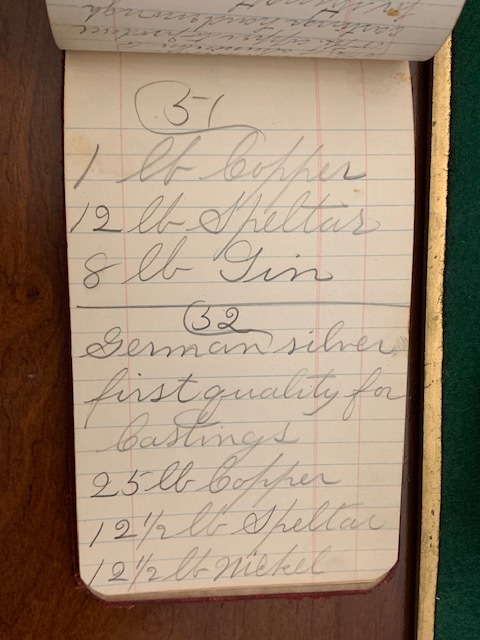 31
1 lb Copper
12 lb Speltar
8 lb Tin
32
German silver
first quality for
Castings
25 lb Copper
12 1/2 lb Speltar
12 1/2 lb Nickel